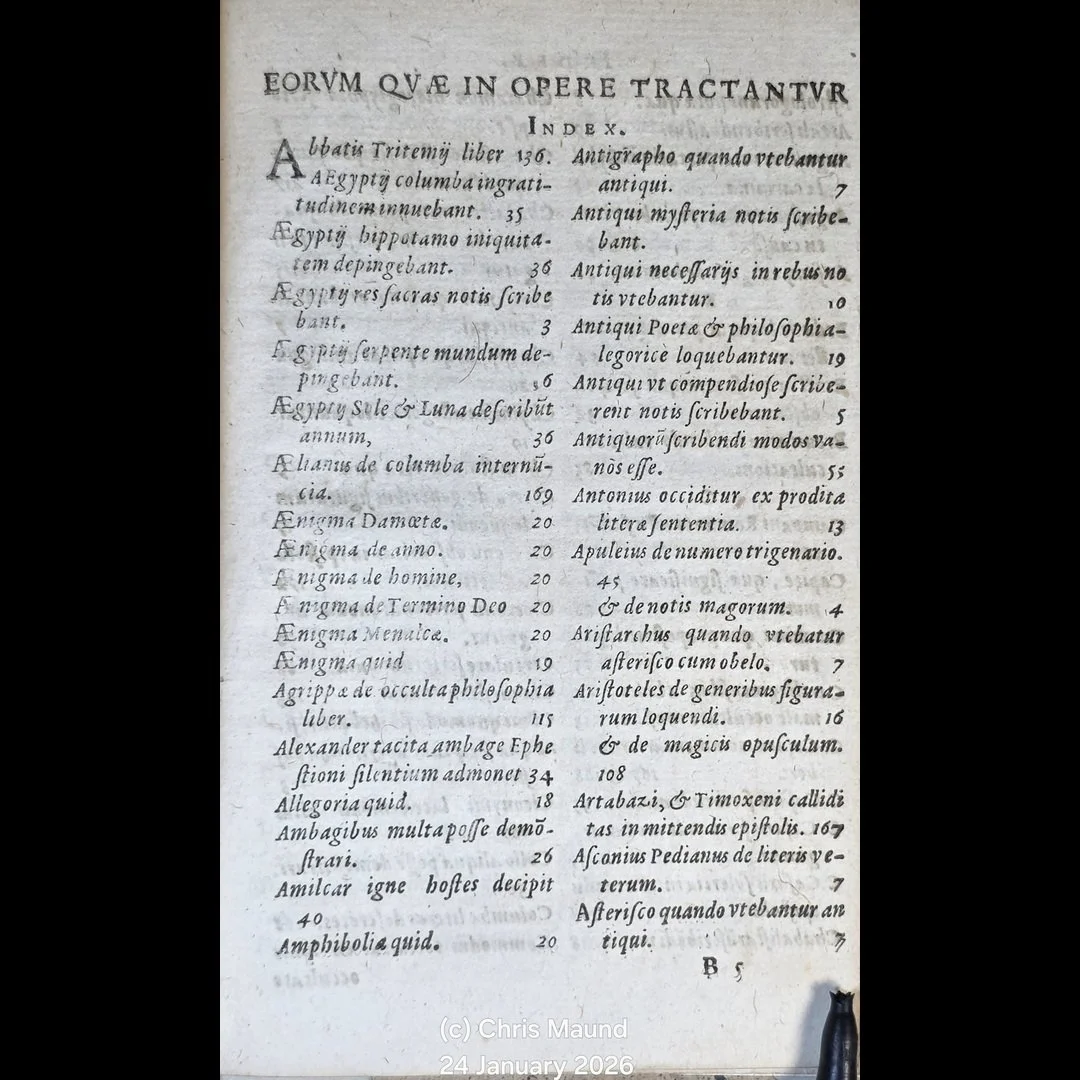 EORVM QVÆ IN OPERE TRACTANTVR
INDEX.
Abbatis Tritemij liber 136.
AEgyptij columba ingrati-
tudinem innuebant. 35
Ægyptij hippotamo iniquita-
tem depingebant. 36
Ægyptij res sacras notis scribe
bant. 3
Ægyptij serpente mundum de-
pingebant. 36
Ægyptij Sole & Luna describũt
annum, 36
Ælianus de columba internũ-
cia. 169
Ænigma Damœtæ. 20
Ænigma de anno. 20
Ænigma de homine, 20
Ænigma de Termino Deo 20
Ænigma Menalcæ. 20
Ænigma quid 19
Agrippæ de occulta philosophia
liber. 115
Alexander tacita ambage Ephe
stioni silentium admonet 34
Allegoria quid. 18
Ambagibus multa posse demõ-
strari. 26
Amilcar igne hostes decipit
40
Amphibolia quid. 20
Antigrapho quando vtebantur
antiqui. 7
Antiqui mysteria notis scribe-
bant.
Antiqui necessarijs in rebus no
tis vtebantur. 10
Antiqui Poetæ & philosophi a-
legoricè loquebantur. 19
Antiqui vt compendiose scribe-
rent notis scribebant. 5
Antiquorũ scribendi modos va-
riòs esse. 55
Antonius occiditur ex prodita
literæ sententia. 13
Apuleius de numero trigenario.
45
& de notis magorum. 4
Aristarchus quando vtebatur
asterisco cum obelo. 7
Aristoteles de generibus figura-
rum loquendi. 16
& de magicis opusculum.
108
Artabazi, & Timoxeni callidi
tas in mittendis epistolis. 167
Asconius Pedianus de literis ve-
terum. 7
Asterisco quando vtebantur an
tiqui. 7
B 5
(c) Chris Maund
24 January 2026